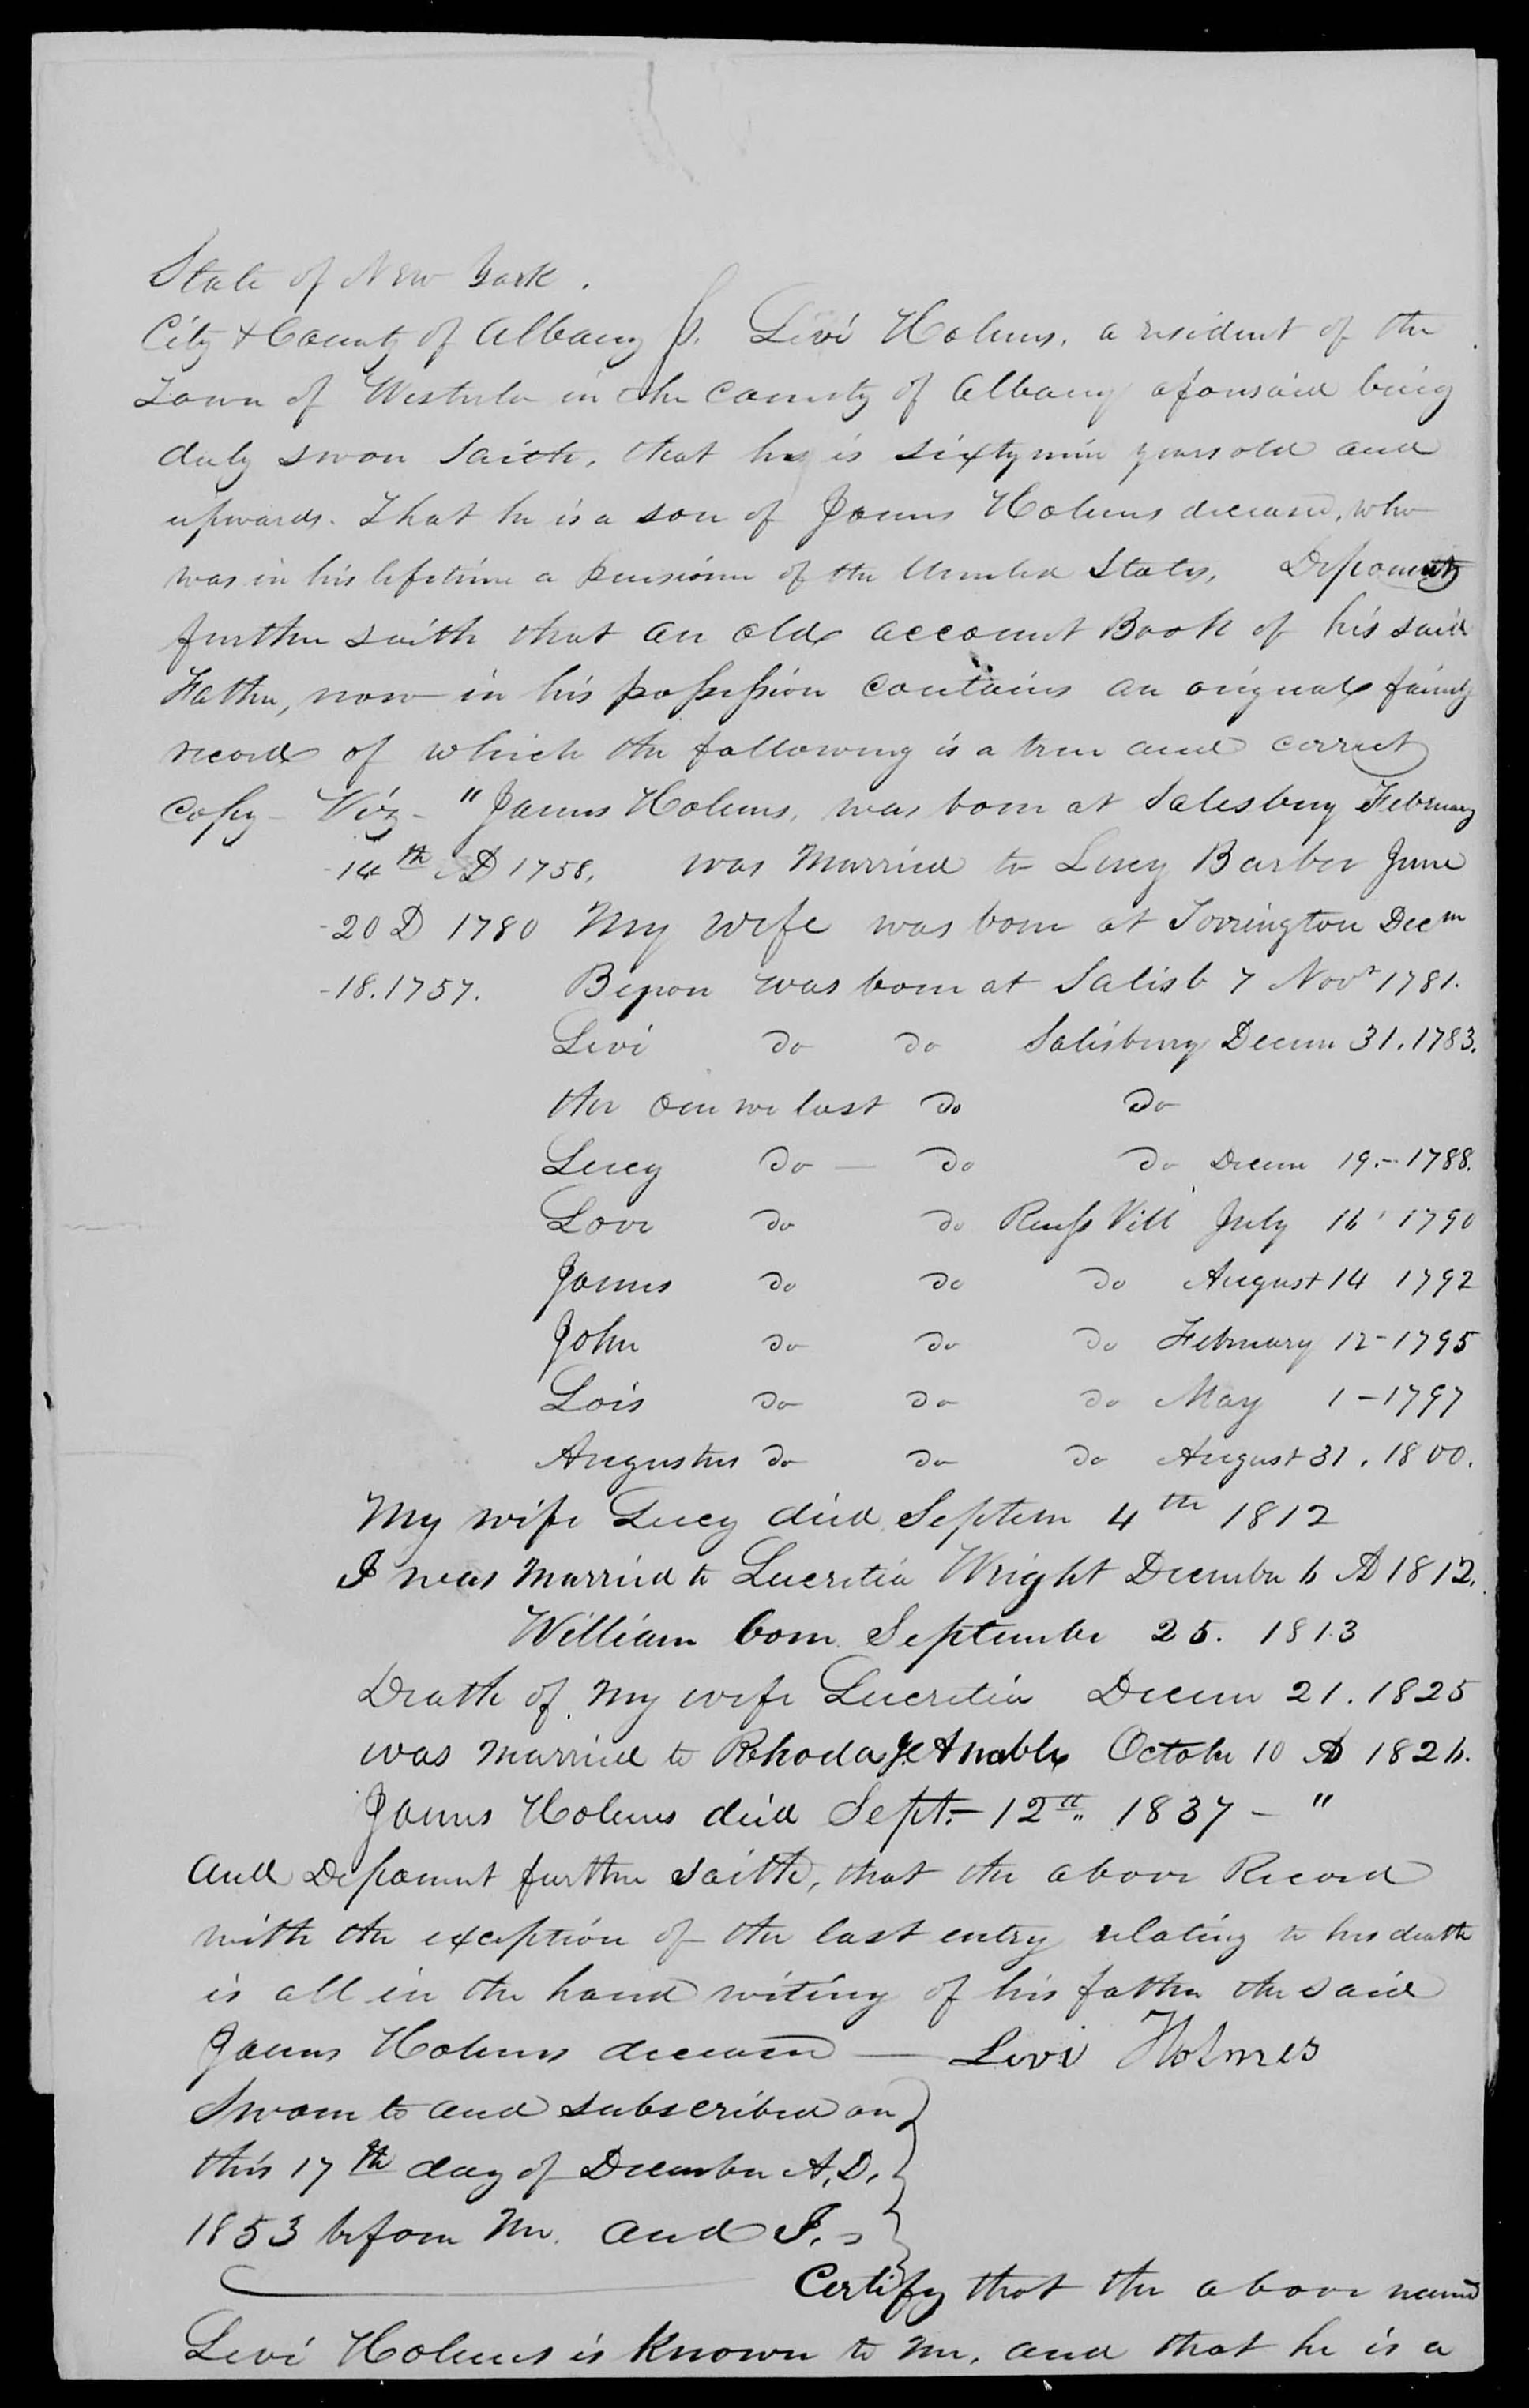 State of New York.
City & County of Albany ss. Levi Holmes, a resident of the
Town of Westerlo in the County of Albany aforesaid being
duly sworn saith, that he is sixty nine years old and
upwards. That he is a son of James Holmes deceased, who
was in his lifetime a Pensioner of the United States, Deponent
further saith that an old account Book of his said
Father, now in his possession contains an original family
record of which the following is a true and correct
copy - Viz - "James Holmes, was born at Salesbury February
14th AD 1758, was Married to Lucy Barber June
20 D 1780 My wife was born at Torrington Decm
18. 1757. was born at Salisb 7 Novr 1781.
Levi do do Salisbury Decem 31. 1783.
the one we lost do do
Lucy do - do do Decem 19. - 1788.
Love do do Renss Vill July 16 1790
James do do do August 14 1792
John do do do February 12 - 1795
Lois do do do May 1 - 1797
Augustus do do do August 31. 1800.
My wife Lucy died Septem 4th 1812
I was Married to Lucretia Wright December 6 AD 1812.
William born September 25. 1813
Death of my wife Lucretia Decem 21. 1825
was married to Rhoda Anable October 10 AD 1826.
James Holmes died Sept. - 12th 1837 - "
and Deponent further saith, that the above Record
with the exception of the last entry relating to his death
is all in the hand writing of his father the said
James Holmes deceased — Levi Holmes
Sworn to and subscribed on
this 17th day of December A.D.
1853 before me. and I,
Certify that the above named
Levi Holmes is known to me, and that he is a